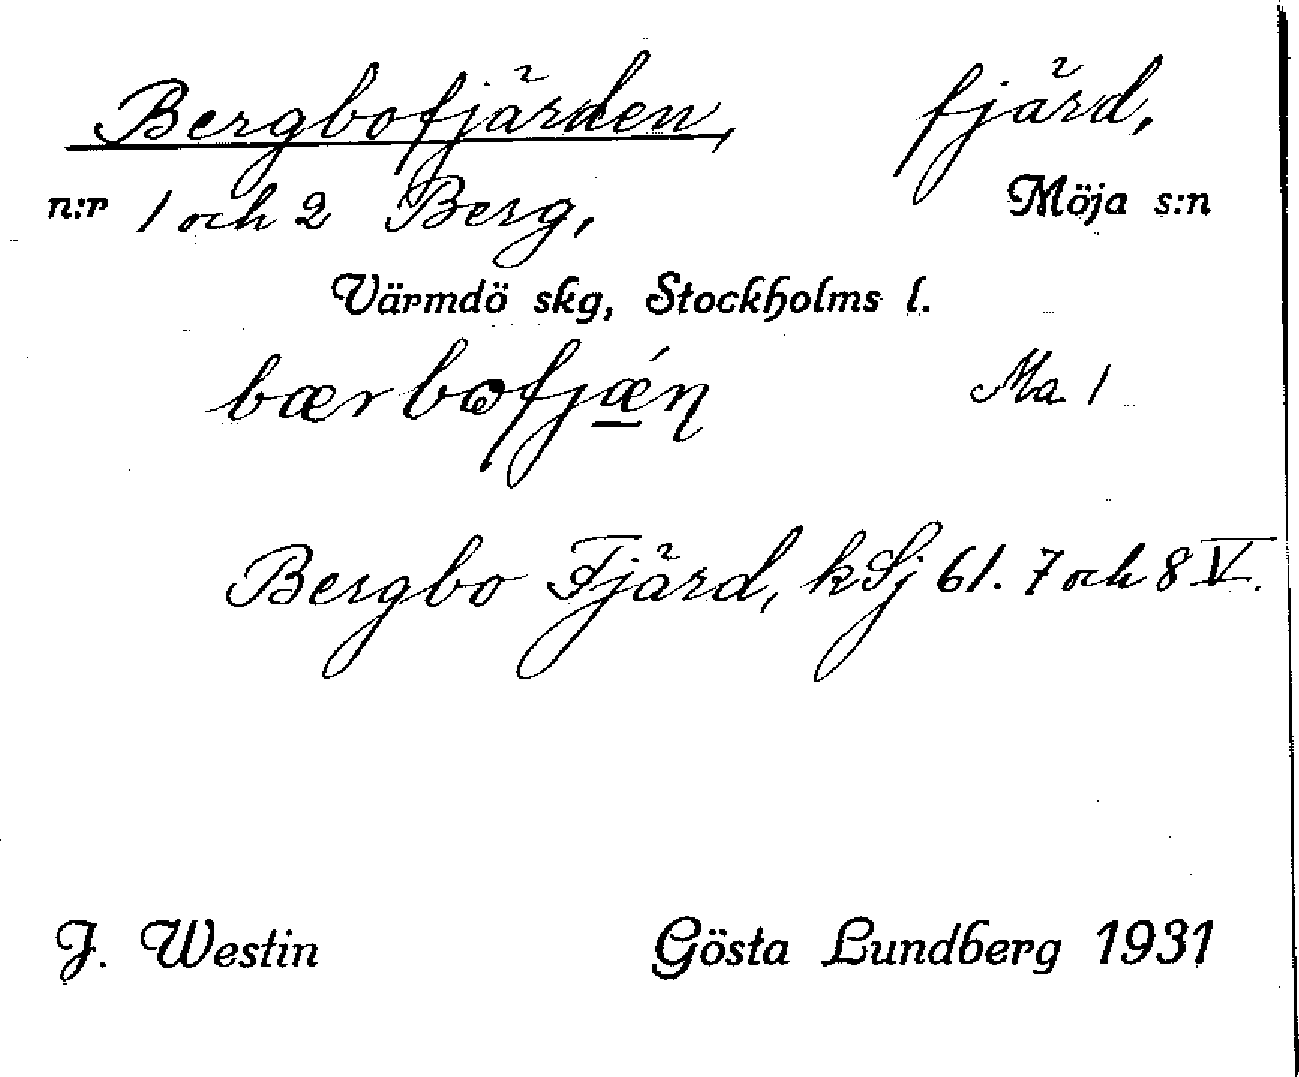 Bergbofjärden, fjärd,
n:r 1 och 2 Berg, Möja s:n
Värmdö skg, Stockholms l.
bærbofjǽn Ma 1
Bergbo Fjärd, kSj 61. 7 och 8 V.
J. Westin Gösta Lundberg 1931